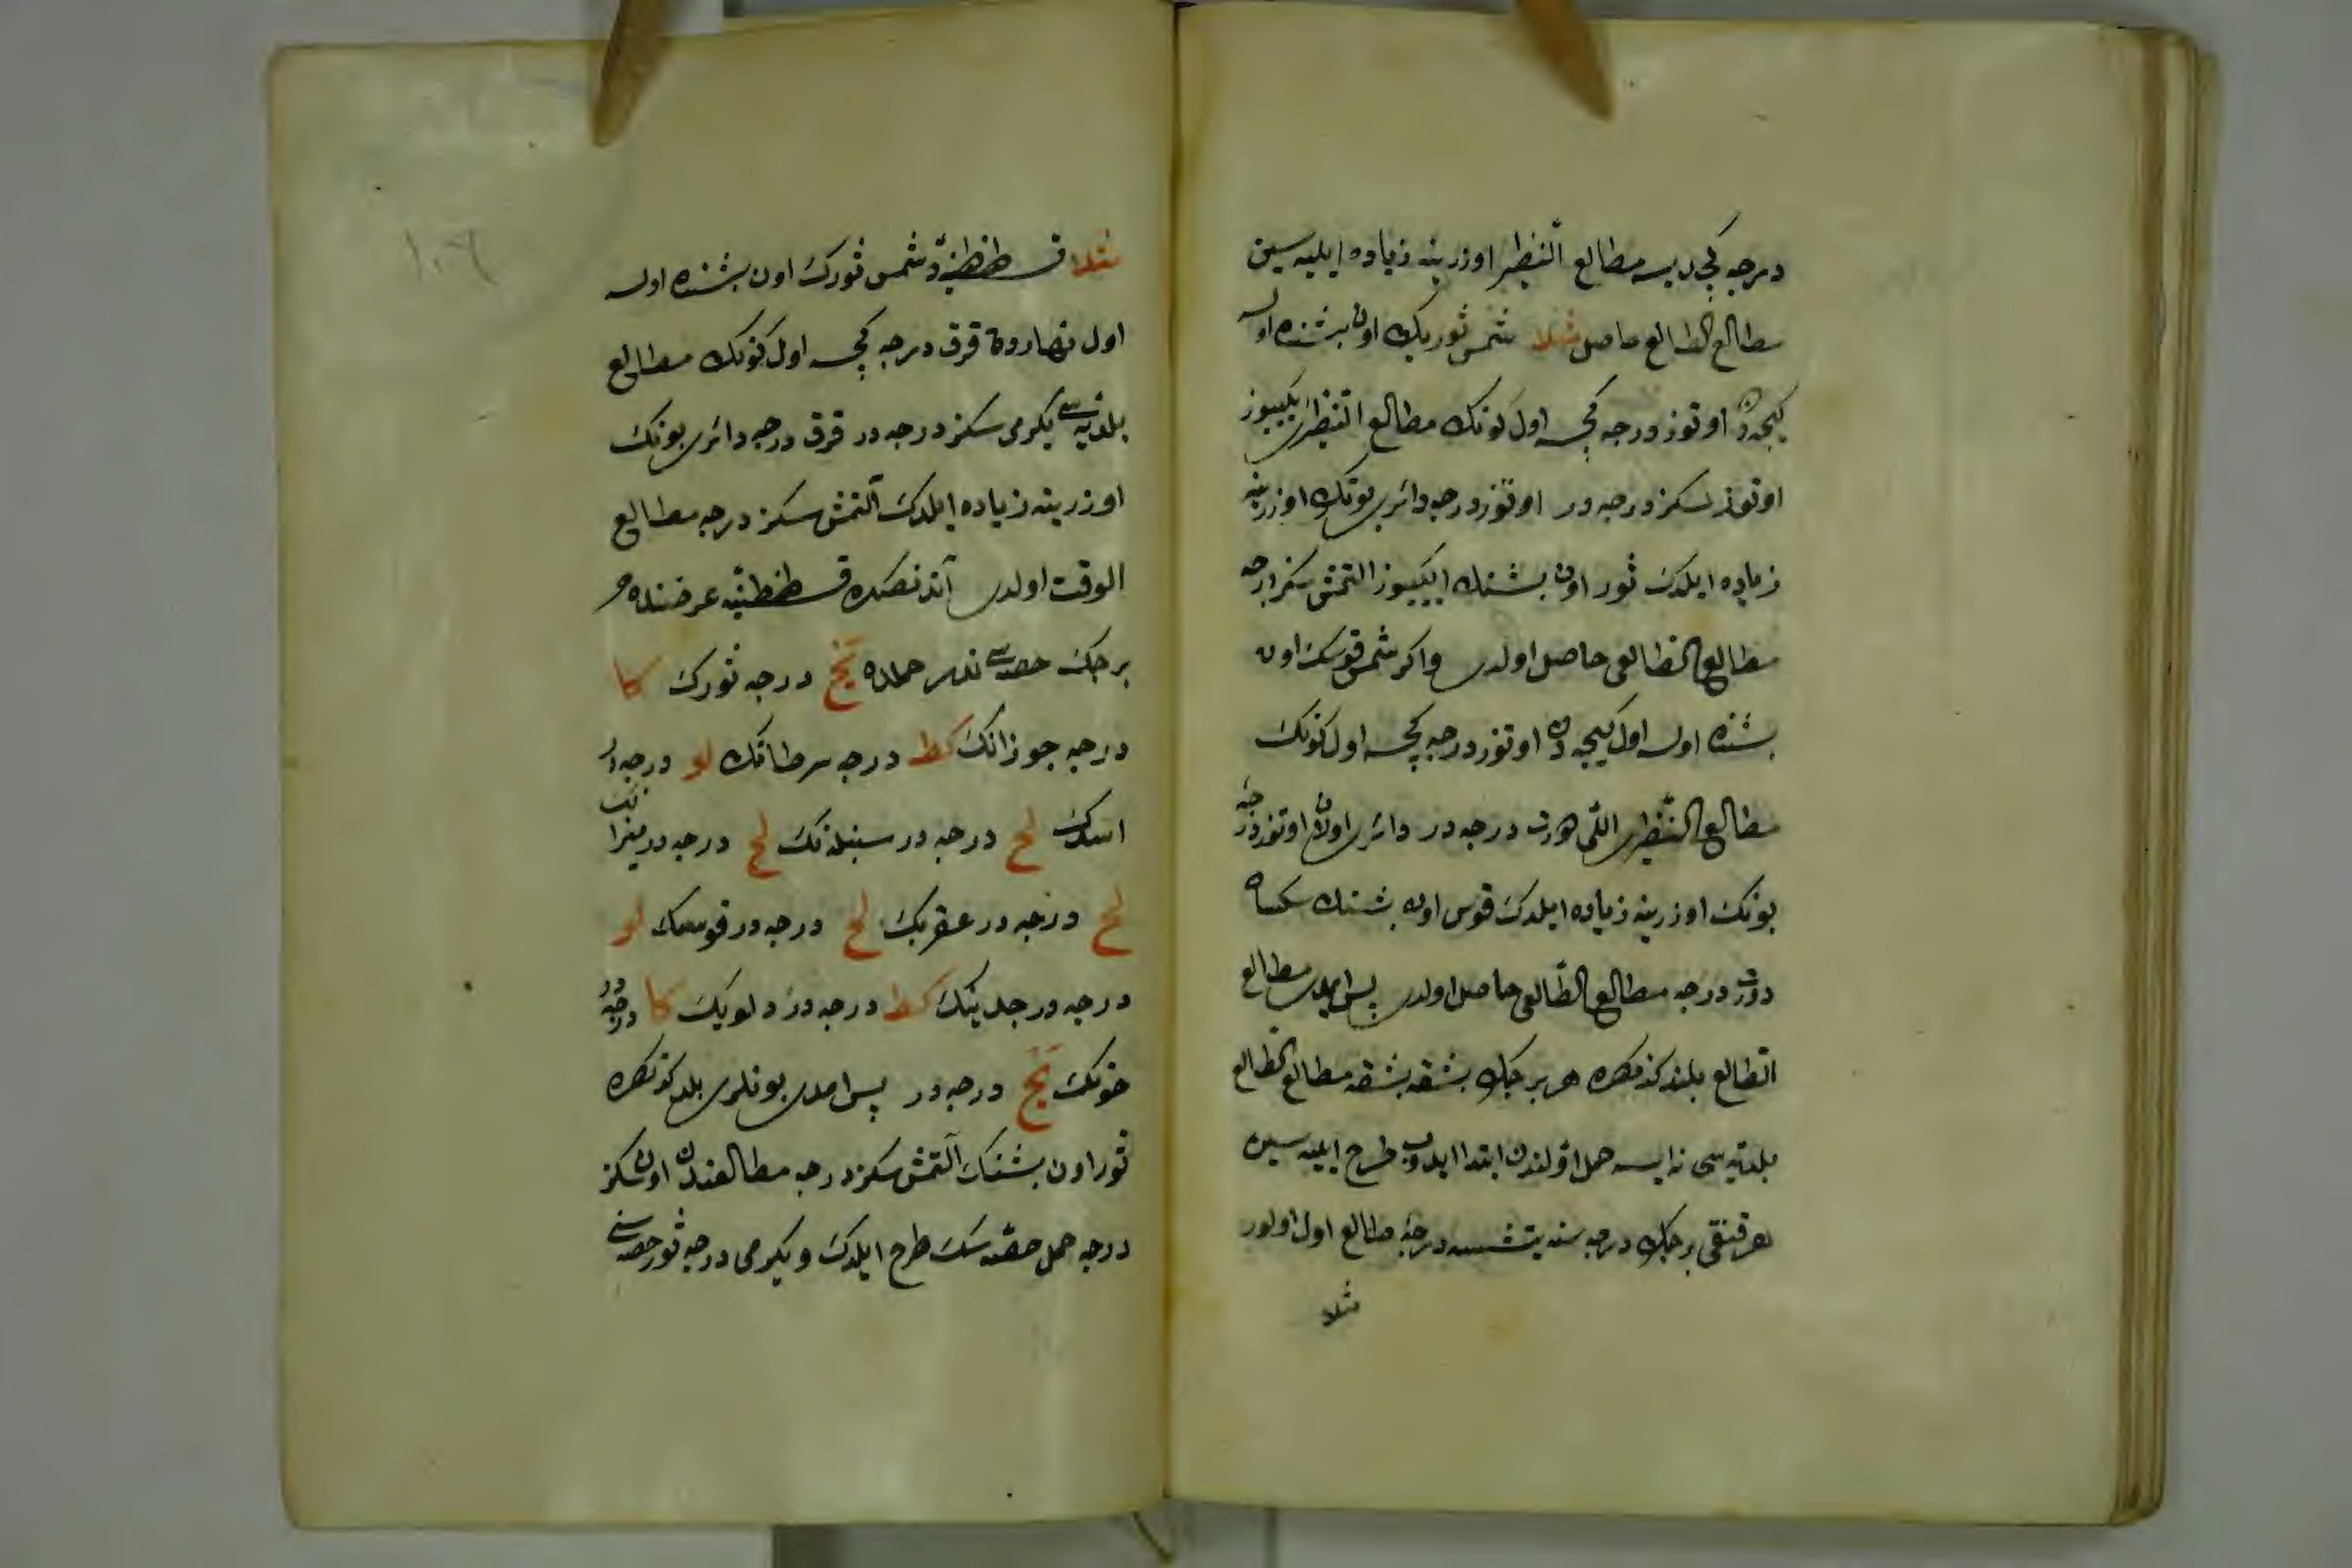 درجه كچدیسه مطالع النظیر اوزرینه زیاده ایلیه سین
مطالع الطالع حاصل مثلا شمس ثوریك اون بشنده اولسه
كیجه دن اوتوز درجه كچسه اول كونك مطالع النظیری ایكیوز
اوتوز سكز درجه در اوتوز درجه دائری بونك اوزرینه
زیاده ایلدك ثور اون بشنك ایكیوز التمش سكز درجه
مطالع الطالعی حاصل اولدی و اكر شمس قوسك اون
بشنده اولسه اول كیجه دن اوتوز درجه كچسه اول كونك
مطالع النظیری اللی دورت درجه در دائر اولان اوتوز درجه
بونك اوزرینه زیاده ایلدك قوس اون بشنك سكسان
دورت درجه مطالع الطالعی حاصل اولدی پس ایمدی مطالع
الطالع بلندكدنصكره هر برجك بشقه بشقه مطالع الطالع
بلدیه سی نه ایسه حمل اولندن ابتدا ایدوب طرح ایلیه سین
هر قنقی برجك درجه سنه یتشسه درجهٔ طالع اول اولور
مثلا
۱۰۶
مثلا قسطنطنیه ده شمس ثورك اون بشنده اولسه
اول نهاردن قرق درجه كچسه اول كونك مطالع
بلدیه سی یكرمی سكز درجه در قرق درجه دائری بونك
اوزرینه زیاده ایلدك آلتمش سكز درجه مطالع
الوقت اولدی آندنصكره قسطنطنیه عرضنده هر
برجك حصه سی ندر حملده یح درجه ثورك كا
درجه جوزانك كط درجه سرطانك لو درجه در
اسدك لح درجه در سنبله نك لح درجه در میزانك
لح درجه در عقربك لح درجه در قوسك لو
درجه در جدینك كط درجه در دلویك كا درجه در
حوتك یح درجه در پس امدی بونلری بلدكدنصكره
ثور اون بشنك آلتمش سكز درجه مطالعندن اون سكز
درجه حمل حصه سك طرح ایلدك و یكرمی درجه ثور حصه سنی